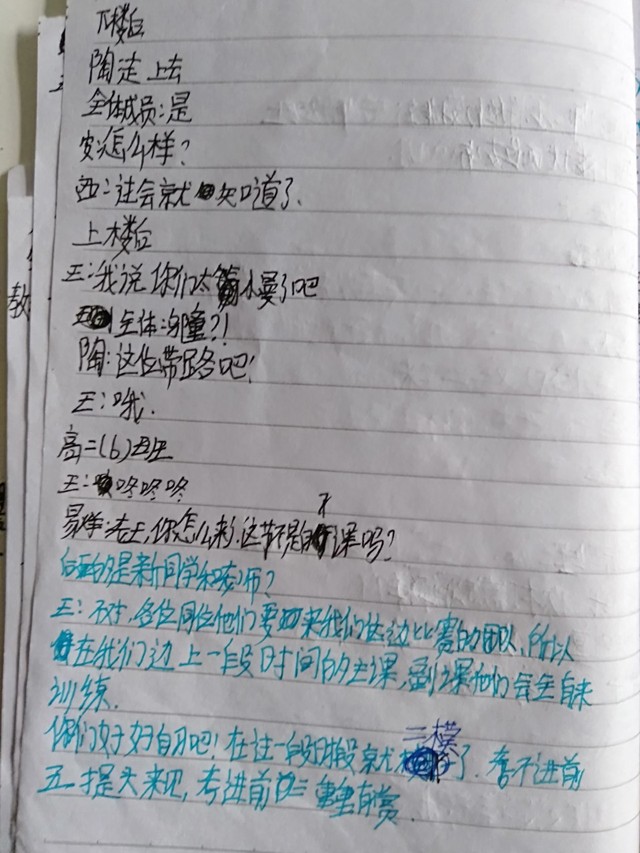 下楼后
陶走上去
全体成员:是
安:怎么样?
西:这会就知道了.
上楼后
王:我说你们太慢了吧
全体:瞳?!
陶:这位带路吧!
王:哦.
高二(6)班
王:咚咚咚
易烊:老王,你怎么来了.这节不是课吗?
的是新同学和老师?
王:不对,各位同位他们要来我们这边比赛的团队,所以
在我们边上一段时间的主课,副课他们会全自来
训练.
你们好好自习吧!在这一段时段就二模了.考不进前
五提头来见,考进前三重重有赏.
教